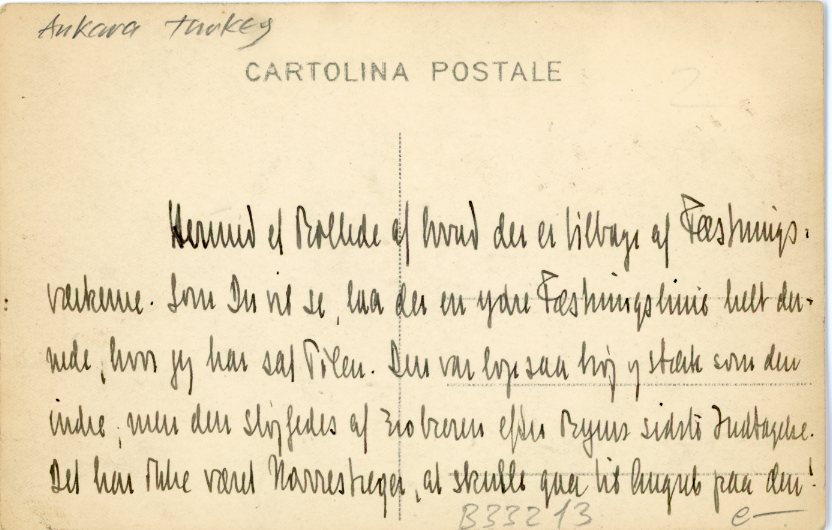 Ankara Turkey
CARTOLINA POSTALE
2
Hermed et Billede af hvad der er tilbage af Fæstnings-
værkerne. Som Du vil se, laa der en ydre Fæstningslinie helt der-
nede, hvor jeg har sat Pilen. Den var lige saa høj og stærk som den
indre, men den sløjfedes af Erobreren efter Byens sidste Indtagelse.
Det har ikke været Narrestreger, at skulle gaa til Angreb paa den!
B33213
e—